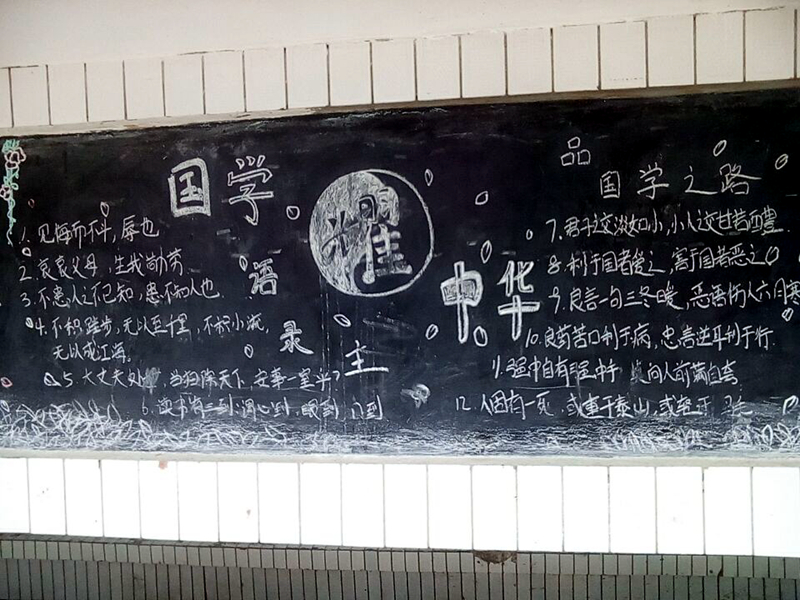 国学
语
录
耀
主
中华
品
国学之路
1. 见侮而不斗,辱也
2. 哀哀父母,生我劬劳
3. 不患人之不己知,患不知人也
4. 不积跬步,无以至千里,不积小流,
无以成江海。
5. 大丈夫处世,当扫除天下,安事一室乎?
6. 读书有三到,谓心到,眼到,口到
7. 君子之交淡如水,小人之交甘若醴
8. 利于国者爱之,害于国者恶之
9. 良言一句三冬暖,恶语伤人六月寒
10. 良药苦口利于病,忠言逆耳利于行.
11. 强中自有强中手,莫向人前满自夸
12. 人固有一死,或重于泰山,或轻于 毛